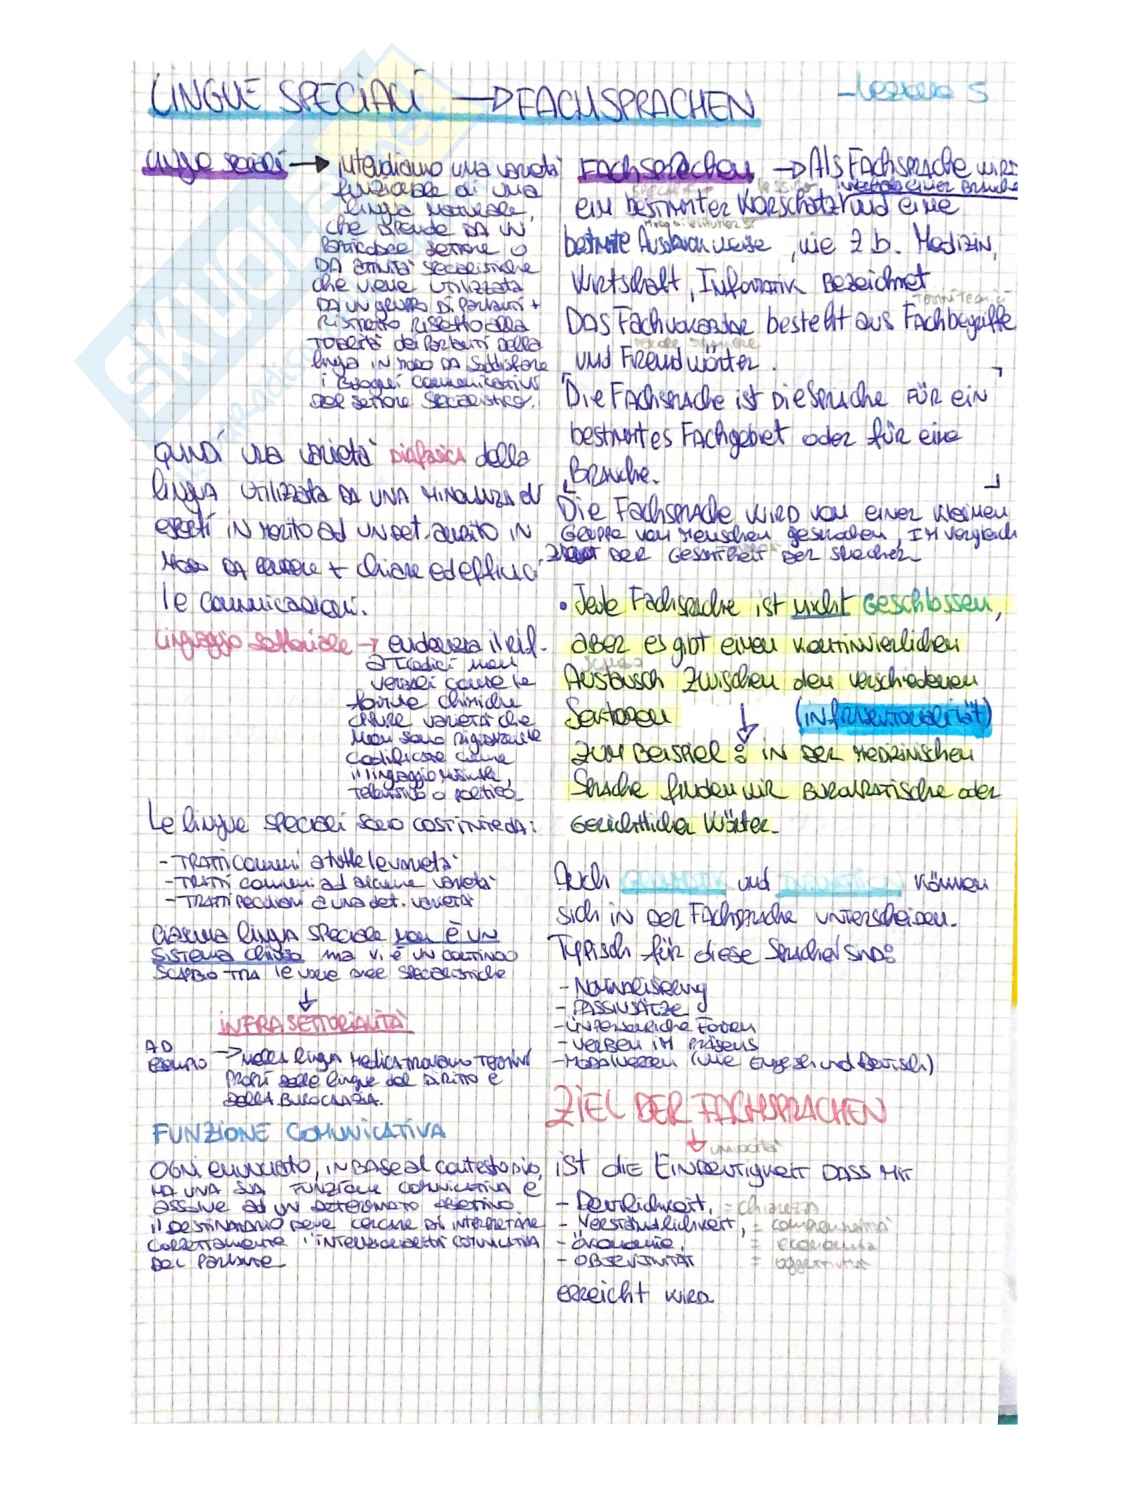 LINGUE SPECIALI → FACHSPRACHEN
- lezione 5
lingue speciali → intendiamo una varietà
funzionale di una
lingua naturale,
che dipende da un
particolare settore o
da attività specialistiche
che viene utilizzata
da un gruppo di parlanti +
ristretto rispetto alla
totalità dei parlanti della
lingua in modo da soddisfare
i bisogni comunicativi
del settore specialistico.
QUINDI una varietà diafasica della
lingua utilizzata da una minoranza di
esperti in merito ad un det. ambito in
modo da rendere + chiare ed efficaci
le comunicazioni.
linguaggio settoriale → evidenzia il rif.
a codici non
verbali come le
formule chimiche
oppure varietà che
non sono rigidamente
codificate come
il linguaggio
televisivo o poetico
Le lingue speciali sono costituite da:
- tratti comuni a tutte le varietà
- tratti comuni ad alcune varietà
- tratti peculiari a una det. varietà
Ciascuna lingua speciale non è un
sistema chiuso ma vi è un continuo
scambio tra le varie aree specialistiche
↓
INFRASETTORIALITÀ
AD
ESEMPIO → nella lingua medica troviamo termini
propri delle lingue del diritto e
della burocrazia.
FUNZIONE COMUNICATIVA
OGNI enunciato, in base al contesto,
ha una sua funzione comunicativa e
assolve ad un determinato obiettivo.
il destinatario deve cercare di interpretare
correttamente l'intenzionalità comunicativa
del parlante
Fachsprachen → Als Fachsprache wird
ein bestimmter Worschatz und eine
bestimmte Ausdruckweise, wie z.b. Medizin,
Wirtschaft, Informatik bezeichnet
termini tecnici
DAS Fachvokabular besteht aus Fachbegriffe
und Fremdwörter.
Die Fachsprache ist die Sprache FÜR ein
bestimmtes Fachgebiet oder für eine
Branche.
Die Fachsprache wird von einer kleinen
Gruppe von Menschen gesprochen, im Vergleich
der Gesamtheit der Sprecher
• Jede Fachsprache ist nicht Geschlossen,
aber es gibt einen kontinuierlichen
Austausch zwischen den verschiedenen
Sektoren ↓ (infrasektoralität)
zum Beispiel: in der medizinischen
Sprache finden wir burokratische oder
gerichtliche Wörter.
Auch und können
sich in der Fachsprache unterscheiden.
Typisch für diese Sprache sind:
- Nominalisierung
- Passivsätze
- Unpersönliche Formen
- Verben im Präsens
- (wie Englisch und Deutsch)
ZIEL DER FACHSPRACHEN
↓ univocità
ist die Eindeutigkeit DASS mit
- Deutlichkeit, = chiarezza
- Verständlichkeit, = comprensività
- ökonomie, = economia
- OBJEKTIVITÄT = oggettività
erreicht wird